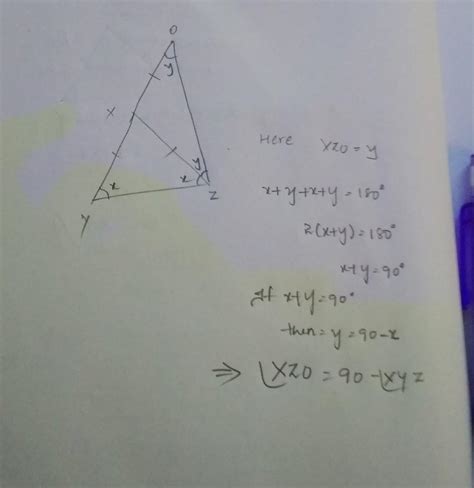 O
y
X
y
x
x
Z
Y
Here XZO = y
x+y+x+y = 180°
2(x+y) = 180°
x+y = 90°
If x+y = 90°
then = y = 90-x
⇒ ∠XZO = 90-∠XYZ